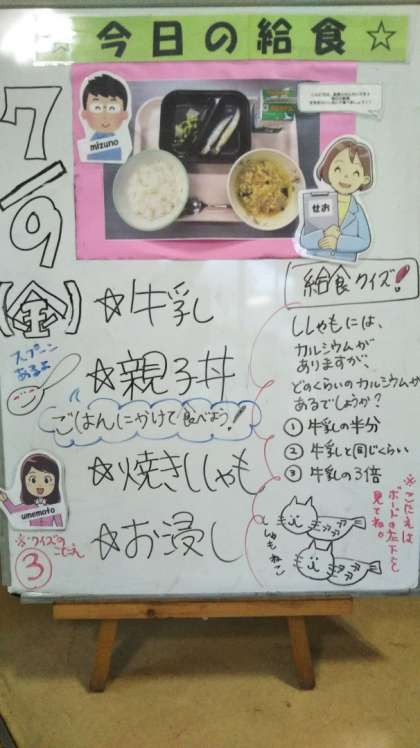 ☆今日の給食☆
7/9
【金】
mizuno
せお
☆牛乳
スプーン
あるよ
☆親子丼
ごはんにかけて食べよう!
☆焼きししゃも
umemoto
☆お浸し
※クイズの
こたえ
③
給食クイズ!
ししゃもには、
カルシウムが
ありますが、
どのくらいのカルシウムが
あるでしょうか?
① 牛乳の半分
② 牛乳と同じくらい
③ 牛乳の3倍
※こたえは
ボードの左下を
見てね。
ししゃもねこ